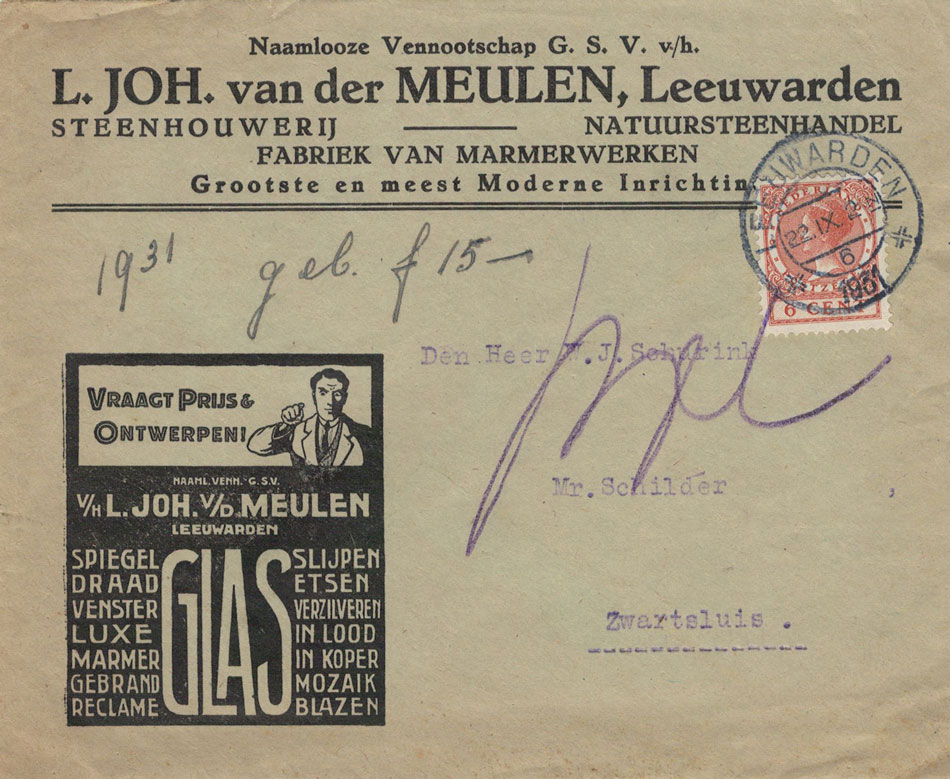 Naamlooze Vennootschap G. S. V. v/h.
L. JOH. van der MEULEN, Leeuwarden
STEENHOUWERIJ NATUURSTEENHANDEL
FABRIEK VAN MARMERWERKEN
Grootste en meest Moderne Inrichtin
LEEUWARDEN
22.IX
6
1931
NEDERLAND
6 CENT
1931 geb. f 15-
Den Heer J. Schurink
Mr. Schilder ,
Zwartsluis .
VRAAGT PRIJS &
ONTWERPEN!
NAAML. VENN. G.S.V.
V/H L. JOH. V/D. MEULEN
LEEUWARDEN
GLAS
SPIEGEL SLIJPEN
DRAAD ETSEN
VENSTER VERZILVEREN
LUXE IN LOOD
MARMER IN KOPER
GEBRAND MOZAIK
RECLAME BLAZEN